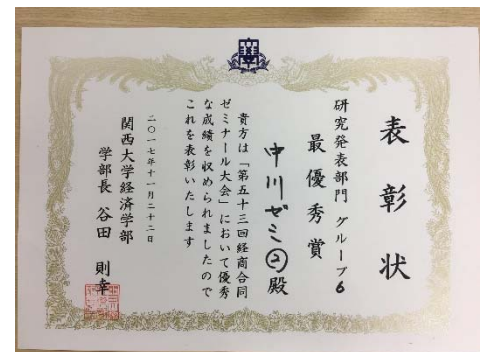 表彰状
研究発表部門 グループ6
最優秀賞
中川ゼミ②殿
貴方は「第五十三回経商合同
ゼミナール大会」において優秀
な成績を収められましたので
これを表彰いたします
二〇一七年十一月二十二日
関西大学経済学部
学部長 谷田 則幸